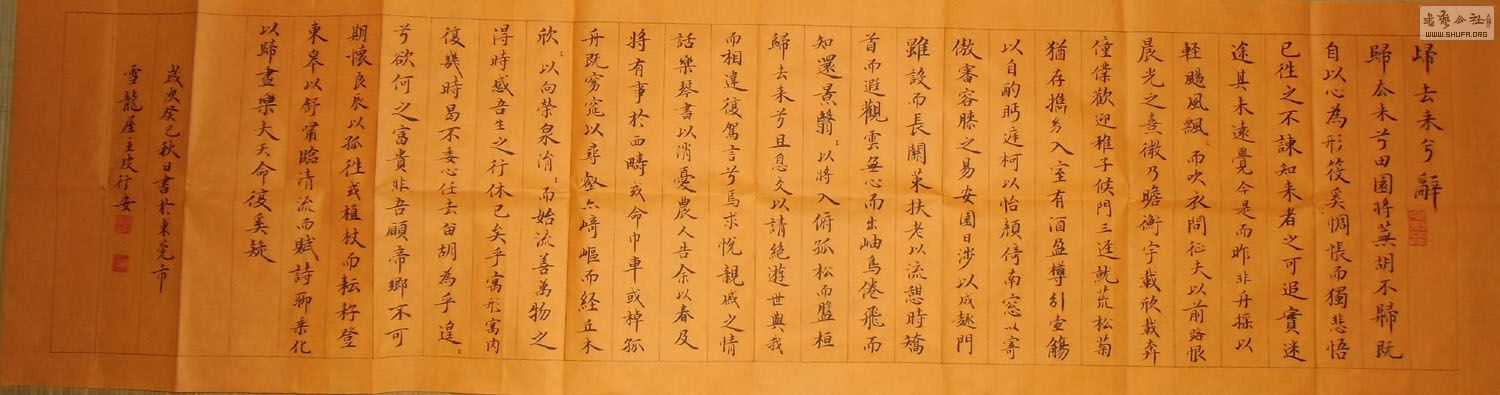 歸去来兮辭
歸去来兮田園将蕪胡不歸既
自以心為形役奚惆悵而獨悲悟
已往之不諫知来者之可追實迷
途其未遠覺今是而昨非舟搖以
輕颺風飄〻而吹衣問征夫以前路恨
晨光之熹微乃瞻衡宇載欣載奔
僮僕歡迎稚子候門三逕就荒松菊
猶存攜幼入室有酒盈樽引壺觴
以自酌眄庭柯以怡顏倚南窓以寄
傲審容膝之易安園日涉以成趣門
雖設而長關策扶老以流憩時矯
首而遐觀雲無心而出岫鳥倦飛而
知還景翳〻以将入俯孤松而盤桓
歸去来兮且息交以請絶遊世與我
而相違復駕言兮焉求悅親戚之情
話樂琴書以消憂農人告余以春及
将有事於西疇或命巾車或棹孤
舟既窈窕以尋壑亦崎嶇而経丘木
欣〻以向榮泉涓〻而始流善萬物之
得時感吾生之行休已矣乎寓形寓内
復幾時曷不委心任去留胡為乎遑〻
兮欲何之富貴非吾願帝鄉不可
期懷良辰以孤往或植杖而耘耔登
東皋以舒嘯臨清流而賦詩聊乗化
以歸盡樂夫天命復奚疑
歲次癸巳秋日書於東莞市
雪龍屋主皮行安
書藝公社
WWW.SHUFA.ORG